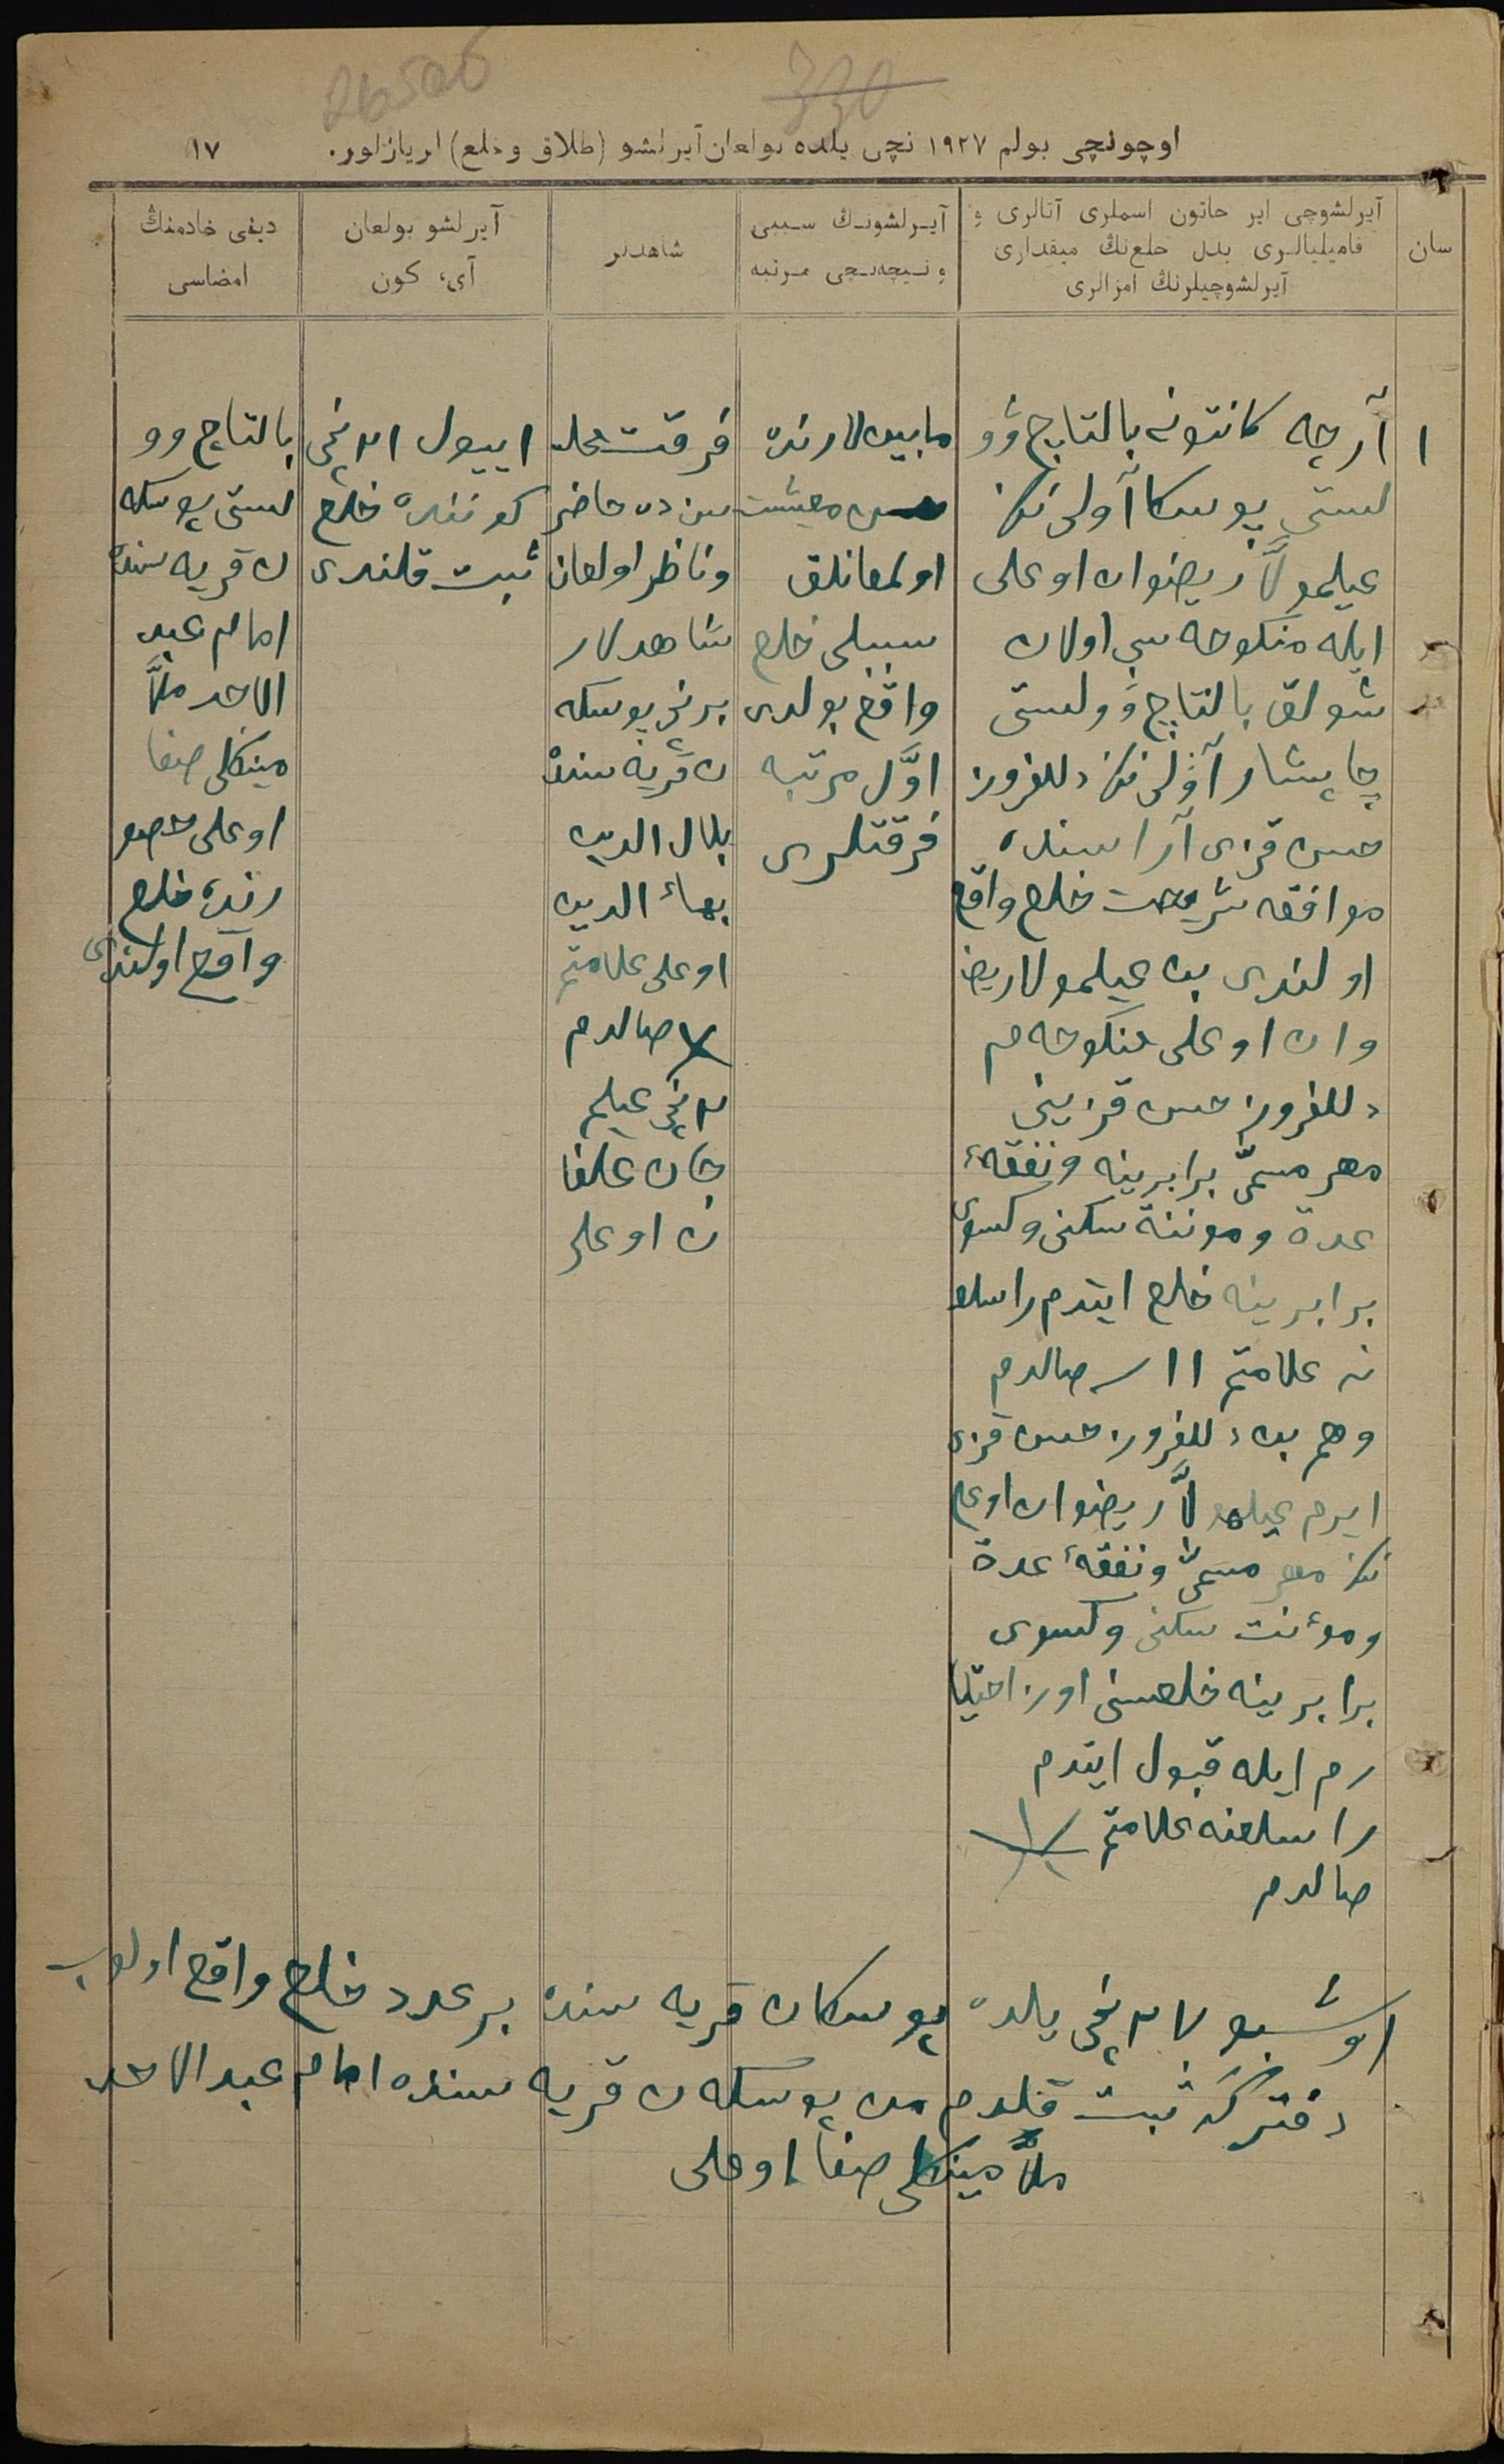 26506
330
اوچونچی بولم ١٩٢٧ نچی یلده بولغان آیرلشو (طلاق و خلع) لر یازلور. ١٧
سان
آیرلشوچی ایر خاتون اسملری آتالری و
فامیلیالری بدل خلع‌نڭ میقداری
آیرلشوچیلرنڭ امزالری
آیرلشونڭ سببی
و نیچه‌نچی مرتبه
شاهدلر
آیرلشو بولغان
آی، کون
دینی خادمنڭ
امضاسی
١
آرچه کانتونه بالتاچ وو
لستی پوسکا آولی‌نڭ
عیلمو لاَّ ریضوان اوغلی
ایله منکوحه سی اولان
شولق بالتاچ وولستی
چاپشار آولی‌نڭ دلفروز
حسن قزی آراسنده
موافقه شریعت خلع واقع
اولندی بن عیلمولا ریض
وان اوغلی منکوحه م
دلفروز حسن قزینی
مهر مسمّی برابرینه ونفقهٔ
عدة ومونة سکنی وکسوی
برابرینه خلع ایتدم راسلغ
نه علامتم ١١ صالدم
وهم بن دلفروز حسن قزی
ایرم عیلمو لاَّ ریضوان اوغلی
نڭ مهر مسمّی ونفقهٔ عدة
ومؤنت سکنی وکسوی
برابرینه خلعسنی اوز اختیا
رم ایله قبول ایتدم
راسلغنه علامتم
صالدم
مابین‌لارنده
حسن معیشت
اولمغانلق
سببلی خلع
واقع بولدی
اوَّل مرتبه
فرقتلری
فرقت مجلـ
سن ده حاضر
وناظر اولغان
شاهدلار
برنچی پوسکه
ن قریه سنده
بلال الدین
بهاءُ الدین
اوغلی علامتم
X صالدم
٢ نچی عیلم
جان علفا
ن اوغلی
اییول ١٢ نچی
کوننده خلع
ثبت قلندی
بالتاچ وو
لستی پوسکه
ن قریه سنده
امام عبد
الاحد ملاَّ
مینکلی صفا
اوغلی حضو
رنده خلع
واقع اولندی
اوشبو ٢٧ نچی یلده پوسکان قریه سنده بر عدد خلع واقع اولوب
دفترکه ثبت قلدم من پوسکه ن قریه سنده امام عبد الاحد
ملاَّ مینکلی صفا اوغلی